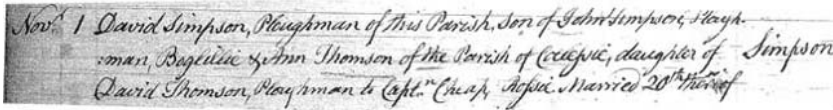 Novr. 1 David Simpson, Ploughman of this Parish, Son of John Simpson, Plough-
:man, Baglillie & Ann Thomson of the Parish of Collessie, daughter of Simpson
David Thomson, Ploughman to Captn. Cheap, Rossie. Married 20th thereof